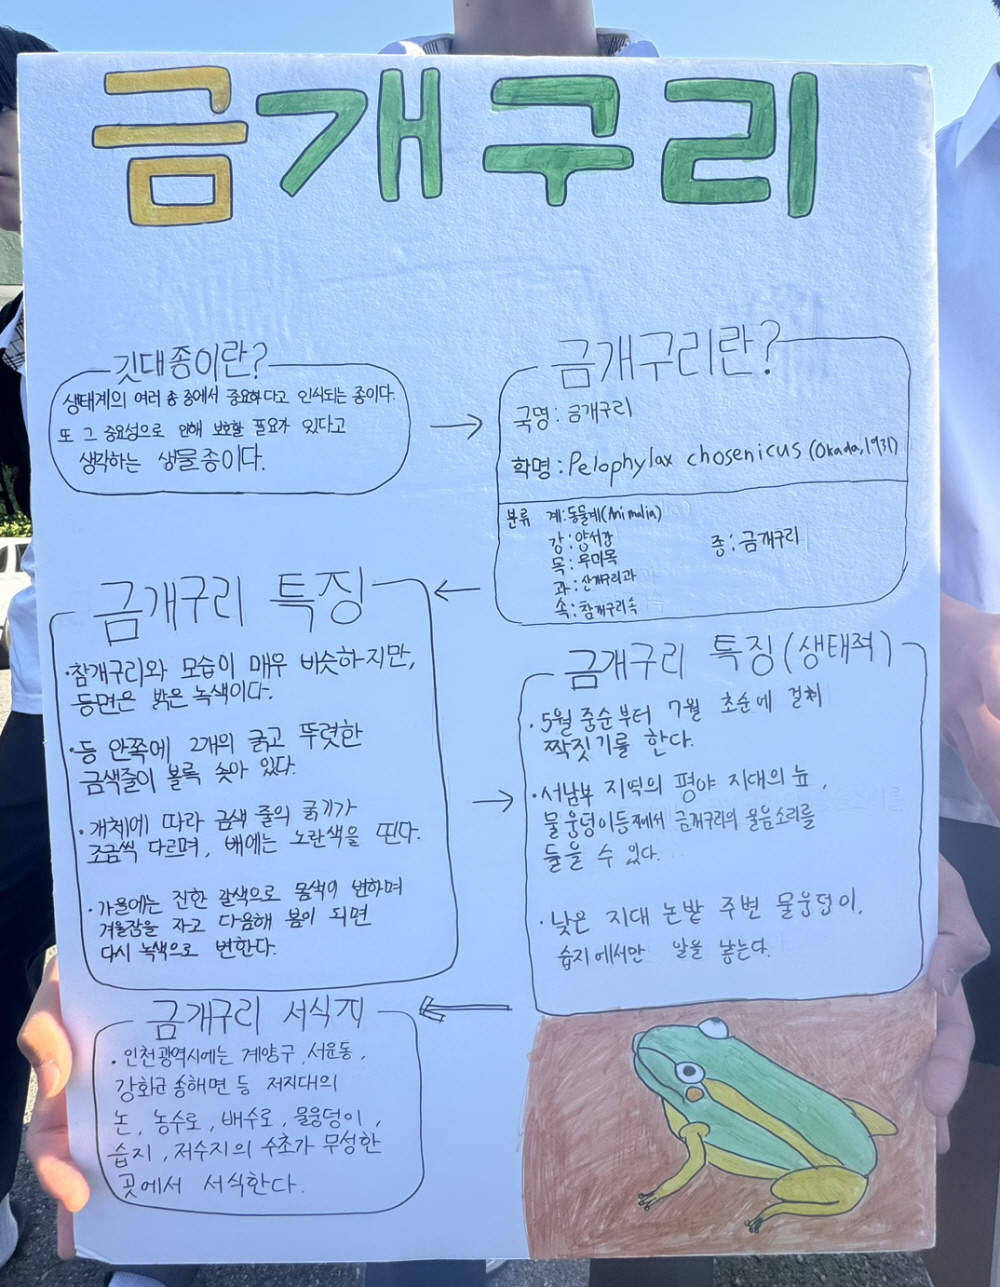 금개구리
깃대종이란?
생태계의 여러 종 중에서 중요하다고 인식되는 종이다.
또 그 중요성으로 인해 보호할 필요가 있다고
생각하는 생물종이다.
금개구리란?
국명: 금개구리
학명: Pelophylax chosenicus (Okada, 1931)
분류 계: 동물계(Animalia)
강: 양서강
목: 무미목
과: 산개구리과
속: 참개구리속
종: 금개구리
금개구리 특징
·참개구리와 모습이 매우 비슷하지만,
등면은 밝은 녹색이다.
·등 안쪽에 2개의 굵고 뚜렷한
금색줄이 볼록 솟아 있다.
·개체에 따라 금색 줄의 굵기가
조금씩 다르며, 배에는 노란색을 띤다.
·가을에는 진한 갈색으로 몸색이 변하며
겨울잠을 자고 다음해 봄이 되면
다시 녹색으로 변한다.
금개구리 특징(생태적)
·5월 중순부터 7월 초순에 걸쳐
짝짓기를 한다.
·서남부 지역의 평야 지대의 늪,
물웅덩이등지에서 금개구리의 울음소리를
들을 수 있다.
·낮은 지대 논밭 주변 물웅덩이,
습지에서만 알을 낳는다.
금개구리 서식지
·인천광역시에는 계양구, 서운동,
강화군 송해면 등 저지대의
논, 농수로, 배수로, 물웅덩이,
습지, 저수지의 수초가 무성한
곳에서 서식한다.